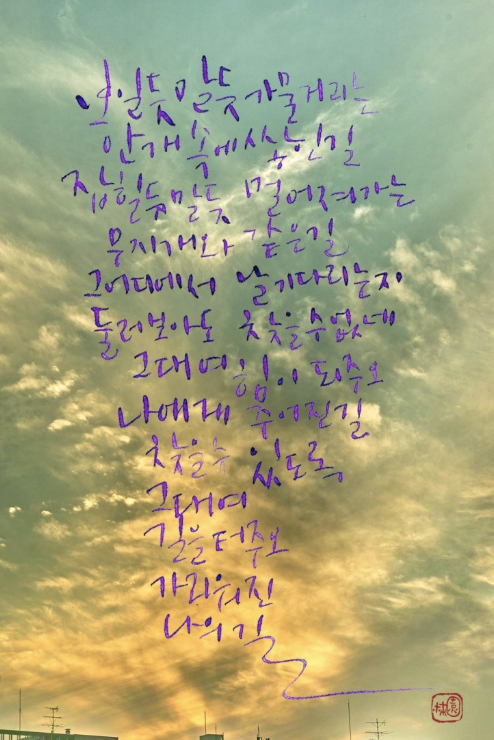 보일듯 말듯 가물거리는
안개 속에 싸인 길
잡힐듯 말듯 멀어져가는
무지개와 같은 길
그 어디에서 날 기다리는지
둘러보아도 찾을 수 없네
그대여 힘이 되주오
나에게 주어진 길
찾을 수 있도록
그대여
길을 터주오
가리워진
나의 길